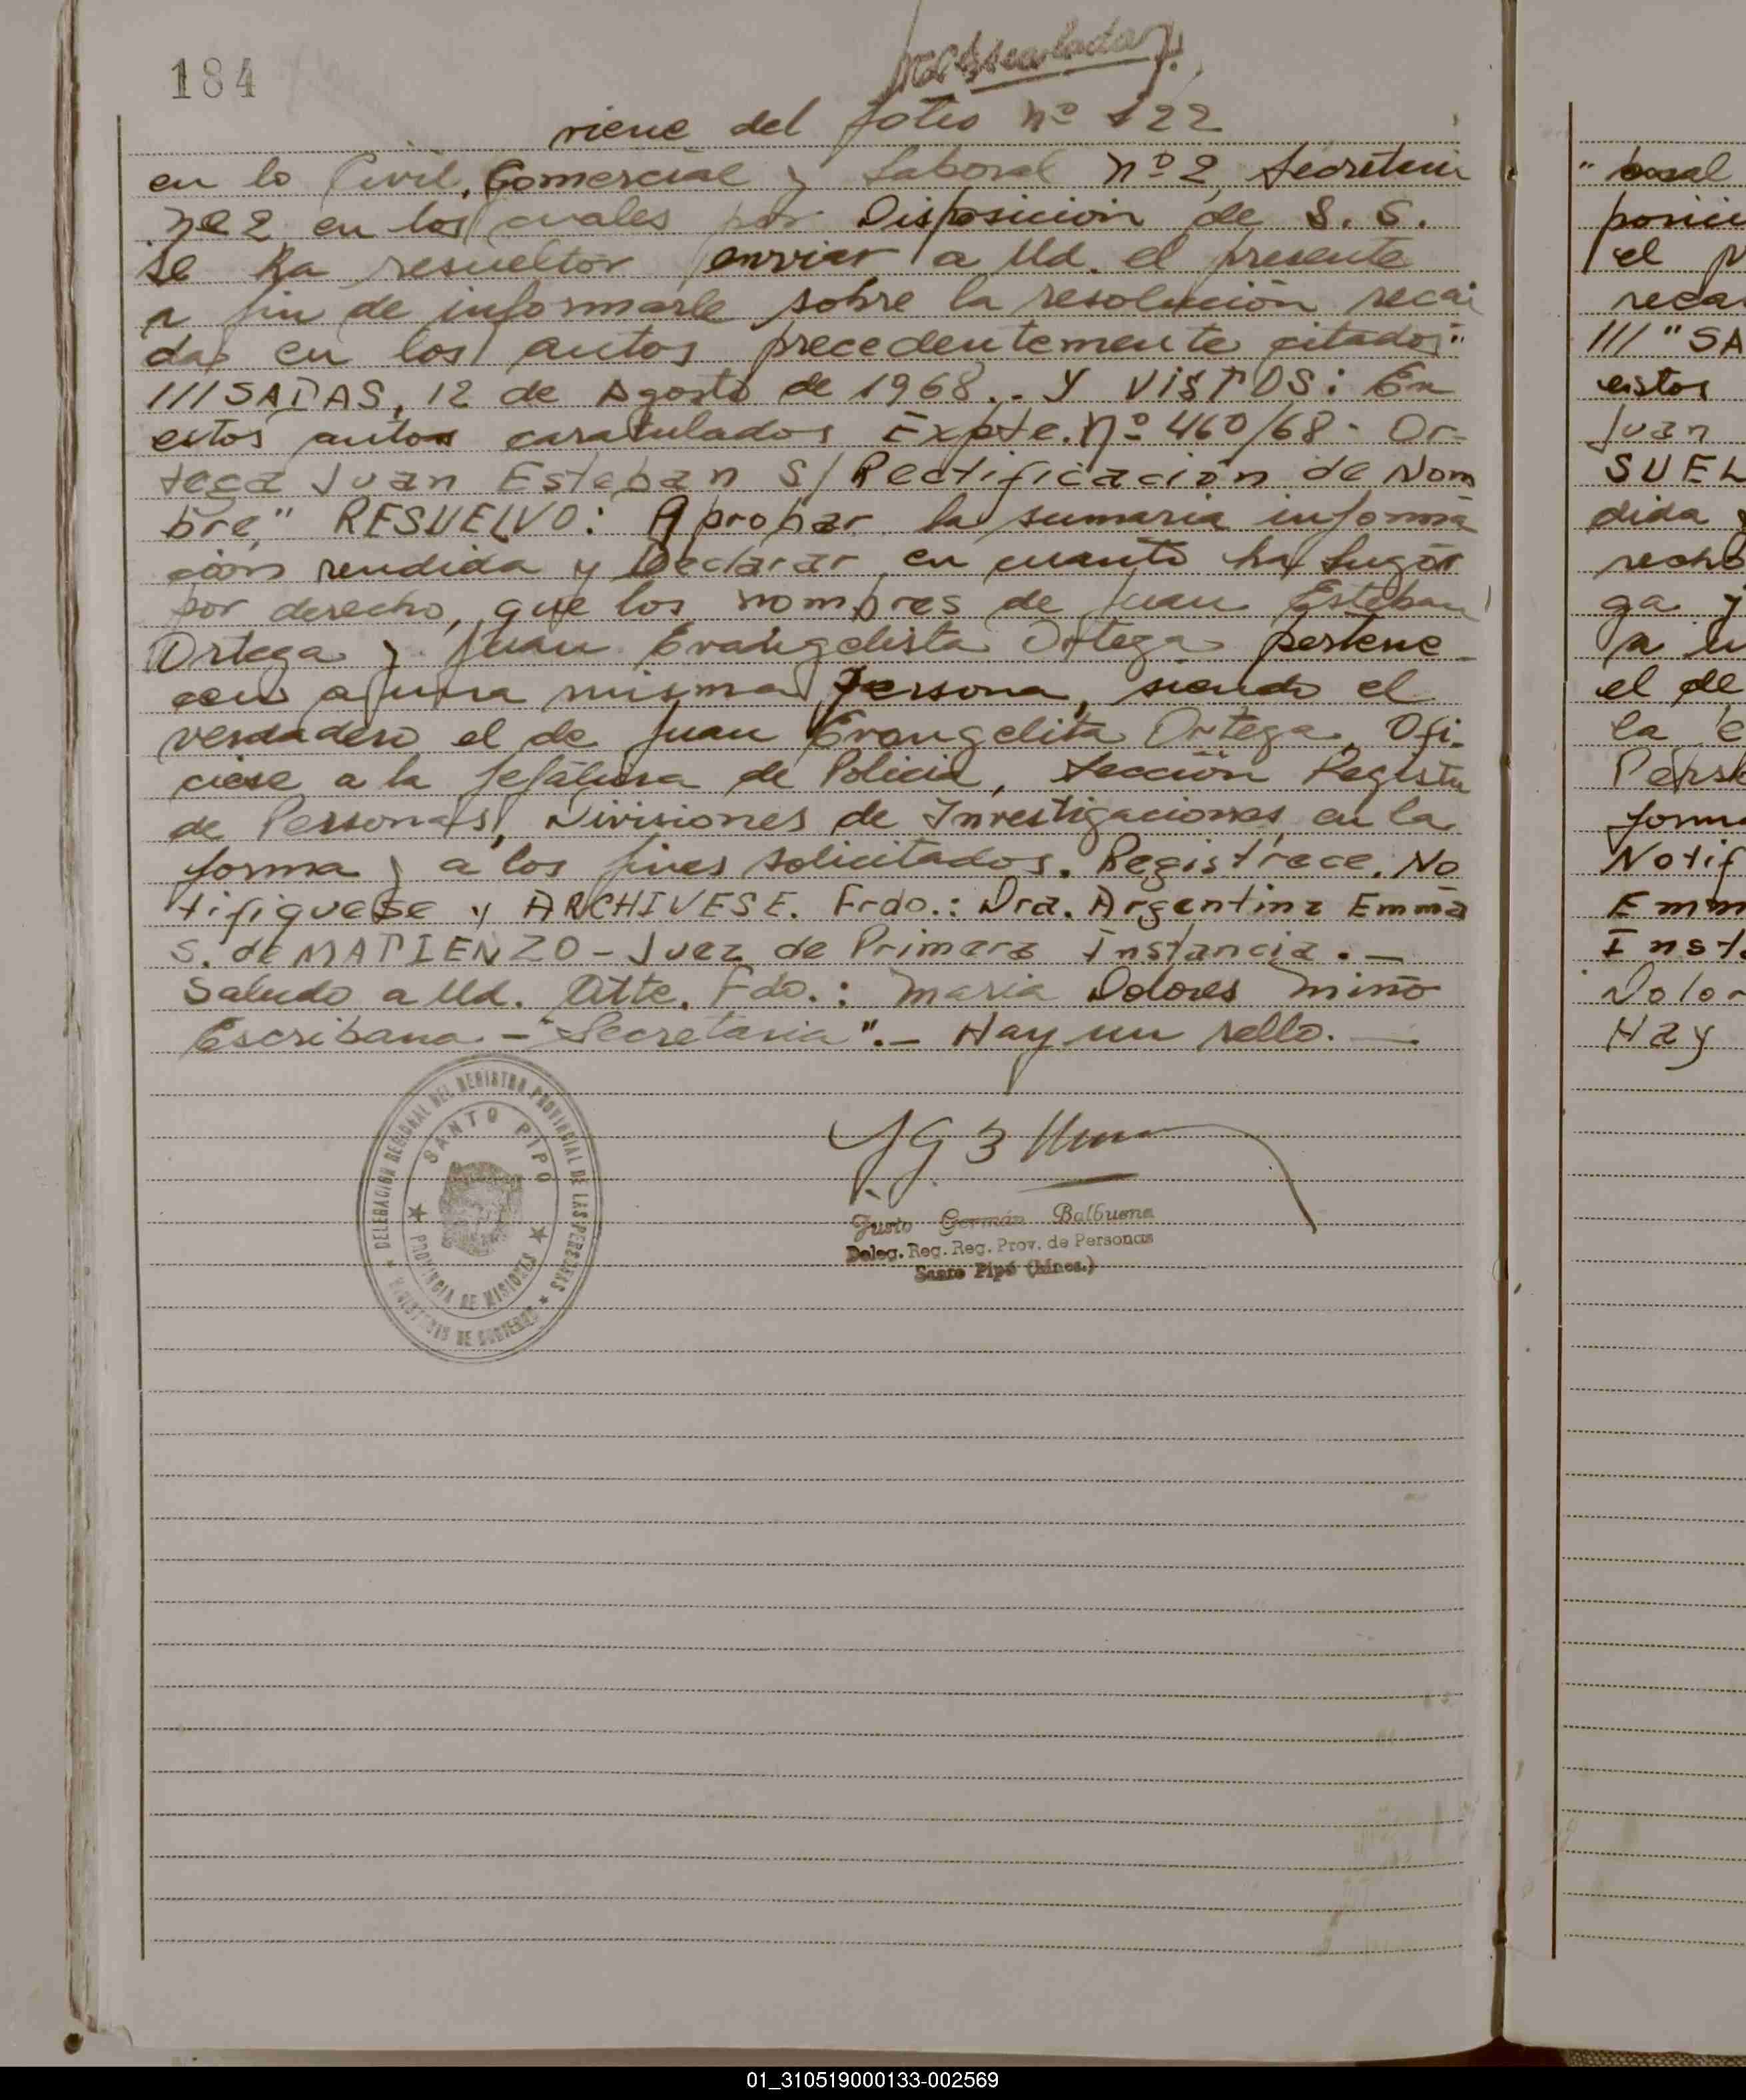 184
viene del folio nº 122
en lo Civil, Comercial y Laboral nº 2, Secretaria
nº 2 en los cuales por Disposicion de S. S.
se ha resueltor enviar a Ud. el presente
a fin de informarle sobre la resolución recai
da en los autos precedentemente citados:"
///SADAS, 12 de Agosto de 1968.. Y VISTOS: En
estos autos caratulados Expte. nº 460/68- Or-
tega Juan Esteban S/ Rectificacion de Nom
bre," RESUELVO: Aprobar la sumaria informa
ción rendida y Declarar en cuanto ha lugar
por derecho, que los nombres de Juan Esteban
Ortega y Juan Evangelista Ortega pertene_
cen a una misma Persona, siendo el
verdadero el de Juan Evangelita Ortega. Ofi-
ciese a la Jefatura de Policia, Sección Registro
de Personas, Divisiones de Investigaciones en la
forma y a los fines solicitados. Registrece. No
tifiquese y ARCHIVESE. Frdo.: Dra. Argentina Emma
S. de MATIENZO - Juez de Primera Instancia. —
Saludo a Ud. Atte. Fdo.: Maria Dolores Miño
Escribana - "Secretaria".- Hay un sello. —
DELEGACION REGIONAL DEL REGISTRO PROVINCIAL DE LAS PERSONAS
SANTO PIPO
PROVINCIA DE MISIONES
MINISTERIO DE GOBIERNO
Justo Germán Balbuena
Deleg. Reg. Reg. Prov. de Personas
Santo Pipó (Mnes.)
" bosal
posici
el p
reca
/// "SA
estos
Juan
SUEL
dida y
recho
ga y
a u
el de
la e
Pers
forma
Notif
Emm
Inst
Dolor
Hay
01_310519000133-002569